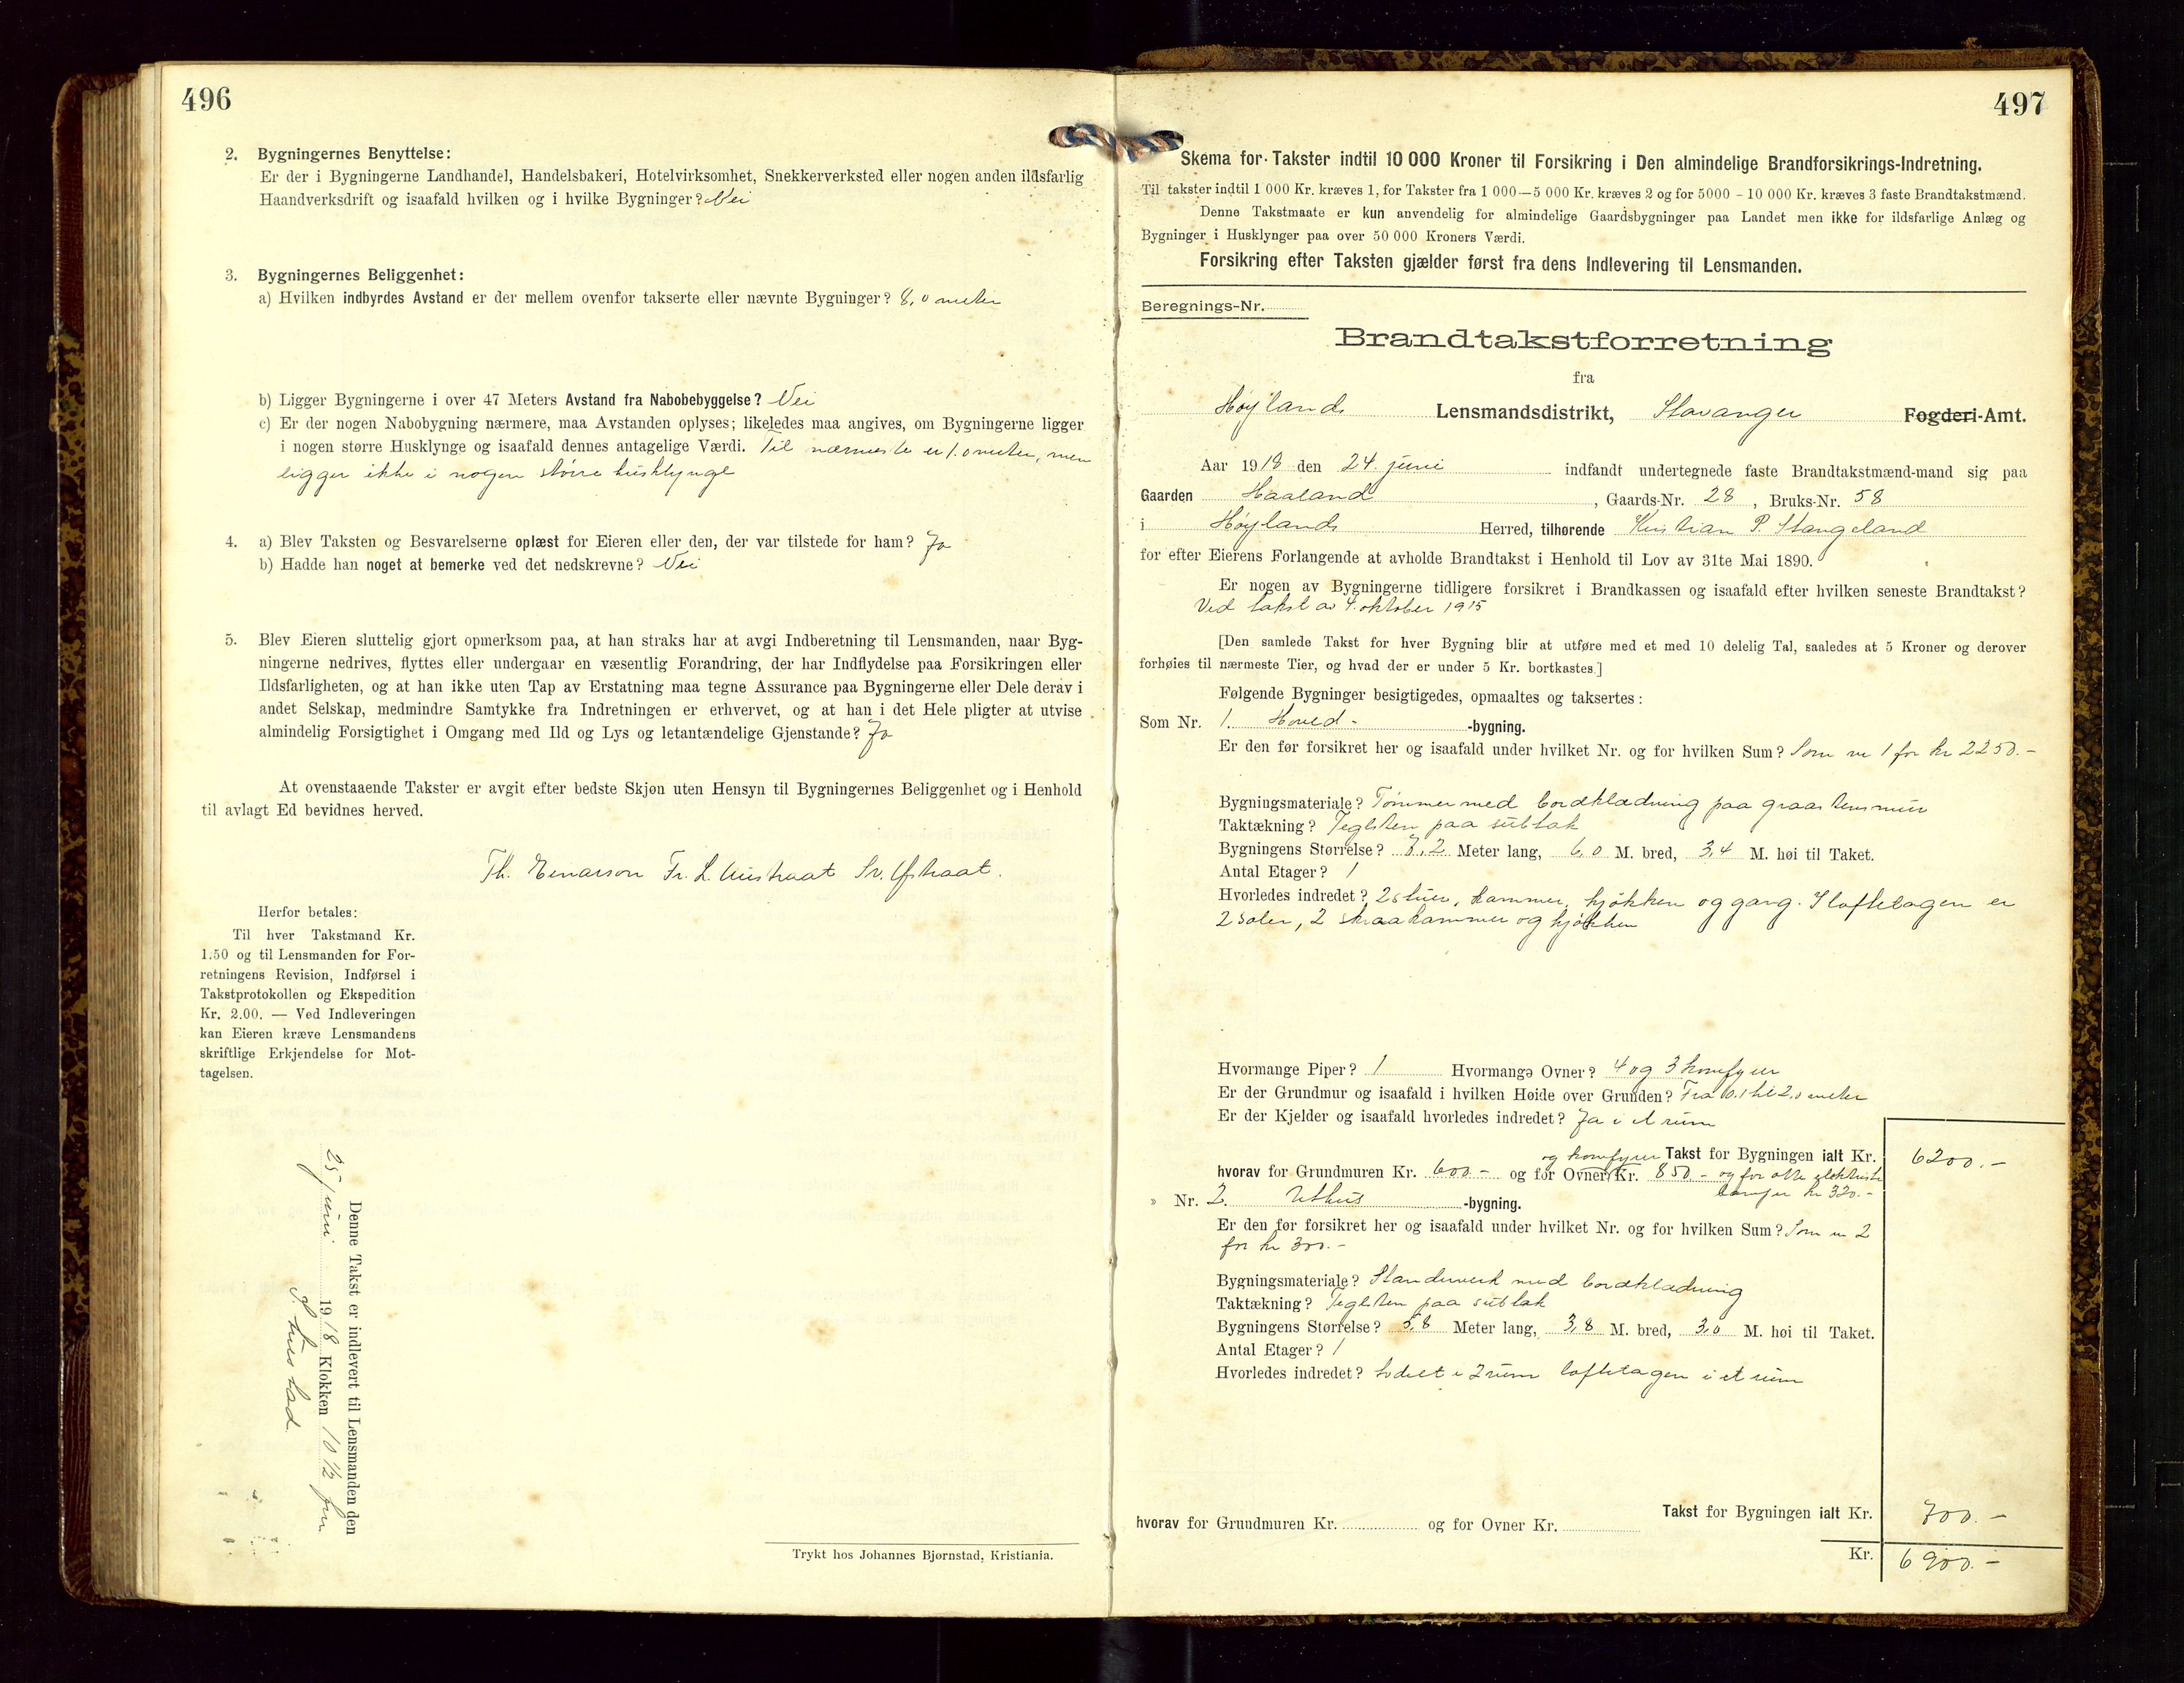 496
2. Bygningernes Benyttelse:
Er der i Bygningerne Landhandel, Handelsbakeri, Hotelvirksomhet, Snekkerverksted eller nogen anden ildsfarlig
Haandverksdrift og isaafald hvilken og i hvilke Bygninger? Nei
3. Bygningernes Beliggenhet:
a) Hvilken indbyrdes Avstand er der mellem ovenfor takserte eller nævnte Bygninger? 8,0 meter
b) Ligger Bygningerne i over 47 Meters Avstand fra Nabobebyggelse? Nei
c) Er der nogen Nabobygning nærmere, maa Avstanden oplyses; likeledes maa angives, om Bygningerne ligger
i nogen større Husklynge og isaafald dennes antagelige Værdi. Til nærmeste er 1.0 meter, men
ligger ikke i nogen større husklynge
4. a) Blev Taksten og Besvarelserne oplæst for Eieren eller den, der var tilstede for ham? Ja
b) Hadde han noget at bemerke ved det nedskrevne? Nei
5. Blev Eieren sluttelig gjort opmerksom paa, at han straks har at avgi Indberetning til Lensmanden, naar Byg-
ningerne nedrives, flyttes eller undergaar en væsentlig Forandring, der har Indflydelse paa Forsikringen eller
Ildsfarligheten, og at han ikke uten Tap av Erstatning maa tegne Assurance paa Bygningerne eller Dele derav i
andet Selskap, medmindre Samtykke fra Indretningen er erhvervet, og at han i det Hele pligter at utvise
almindelig Forsigtighet i Omgang med Ild og Lys og letantændelige Gjenstande? Ja
At ovenstaaende Takster er avgit efter bedste Skjøn uten Hensyn til Bygningernes Beliggenhet og i Henhold
til avlagt Ed bevidnes herved.
Th. Einarson Fr. L. Austraat Sv.
Herfor betales:
Til hver Takstmand Kr.
1.50 og til Lensmanden for For-
retningens Revision, Indførsel i
Takstprotokollen og Ekspedition
Kr. 2.00. — Ved Indleveringen
kan Eieren kræve Lensmandens
skriftlige Erkjendelse for Mot-
tagelsen.
Denne Takst er indlevert til Lensmanden den
25 juni 1918 Klokken 10 1/2 fm
Trykt hos Johannes Bjørnstad, Kristiania.
497
Skema for Takster indtil 10 000 Kroner til Forsikring i Den almindelige Brandforsikrings-Indretning.
Til takster indtil 1 000 Kr. kræves 1, for Takster fra 1 000—5 000 Kr. kræves 2 og for 5000 - 10 000 Kr. kræves 3 faste Brandtakstmænd.
Denne Takstmaate er kun anvendelig for almindelige Gaardsbygninger paa Landet men ikke for ildsfarlige Anlæg og
Bygninger i Husklynger paa over 50 000 Kroners Værdi.
Forsikring efter Taksten gjælder først fra dens Indlevering til Lensmanden.
Beregnings-Nr.
Brandtakstforretning
fra
Høylands Lensmandsdistrikt, Stavanger Fogderi-Amt.
Aar 1918 den 24. juni indfandt undertegnede faste Brandtakstmænd-mand sig paa
Gaarden Haaland, Gaards-Nr. 28, Bruks-Nr. 58
i Høylands Herred, tilhørende Kristian P. Stangeland
for efter Eierens Forlangende at avholde Brandtakst i Henhold til Lov av 31te Mai 1890.
Er nogen av Bygningerne tidligere forsikret i Brandkassen og isaafald efter hvilken seneste Brandtakst?
Ved takst av 4. oktober 1915
[Den samlede Takst for hver Bygning blir at utføre med et med 10 delelig Tal, saaledes at 5 Kroner og derover
forhøies til nærmeste Tier, og hvad der er under 5 Kr. bortkastes.]
Følgende Bygninger besigtigedes, opmaaltes og taksertes:
Som Nr. 1. Hoved- -bygning.
Er den før forsikret her og isaafald under hvilket Nr. og for hvilken Sum? Som nr 1 for kr 2250.-
Bygningsmateriale? Tømmer med bordklædning paa graastensmur
Taktækning? Teglsten paa sutak
Bygningens Størrelse? 7,2 Meter lang, 6,0 M. bred, 3,4 M. høi til Taket.
Antal Etager? 1
Hvorledes indredet? 2 stuer, kammer, kjøkken og gang. I loftetagen er
2 saler, 2 skraakammer og kjøkken
Hvormange Piper? 1 Hvormange Ovner? 4 og 3 komfyrer
Er der Grundmur og isaafald i hvilken Høide over Grunden? Fra 0.1 til 2,0 meter
Er der Kjelder og isaafald hvorledes indredet? Ja i et rum
og komfyrer Takst for Bygningen ialt Kr. 6200.-
hvorav for Grundmuren Kr. 600.- og for Ovner Kr. 850.- og for otte elektriske
lamper kr 320.-
» Nr. 2. Uthus -bygning.
Er den før forsikret her og isaafald under hvilket Nr. og for hvilken Sum? Som nr 2
for kr 300.-
Bygningsmateriale? Standerverk med bordklædning
Taktækning? Teglsten paa sutak
Bygningens Størrelse? 5,8 Meter lang, 3,8 M. bred, 3,0 M. høi til Taket.
Antal Etager? 1
Hvorledes indredet? Indelt i 2 rum loftetagen i et rum
Takst for Bygningen ialt Kr. 700.-
hvorav for Grundmuren Kr. og for Ovner Kr.
Kr. 6900.-